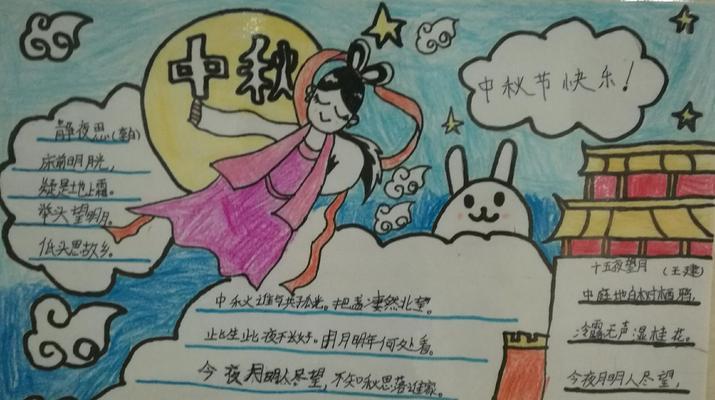 中秋
中秋节快乐！
静夜思(李白)
床前明月光，
疑是地上霜。
举头望明月。
低头思故乡。
中秋谁与共孤光。把盏凄然北望。
此生此夜不长好。明月明年何处看。
今夜月明人尽望，不知秋思落谁家。
十五夜望月（王建）
中庭地白树栖鸦，
冷露无声湿桂花。
今夜月明人尽望，